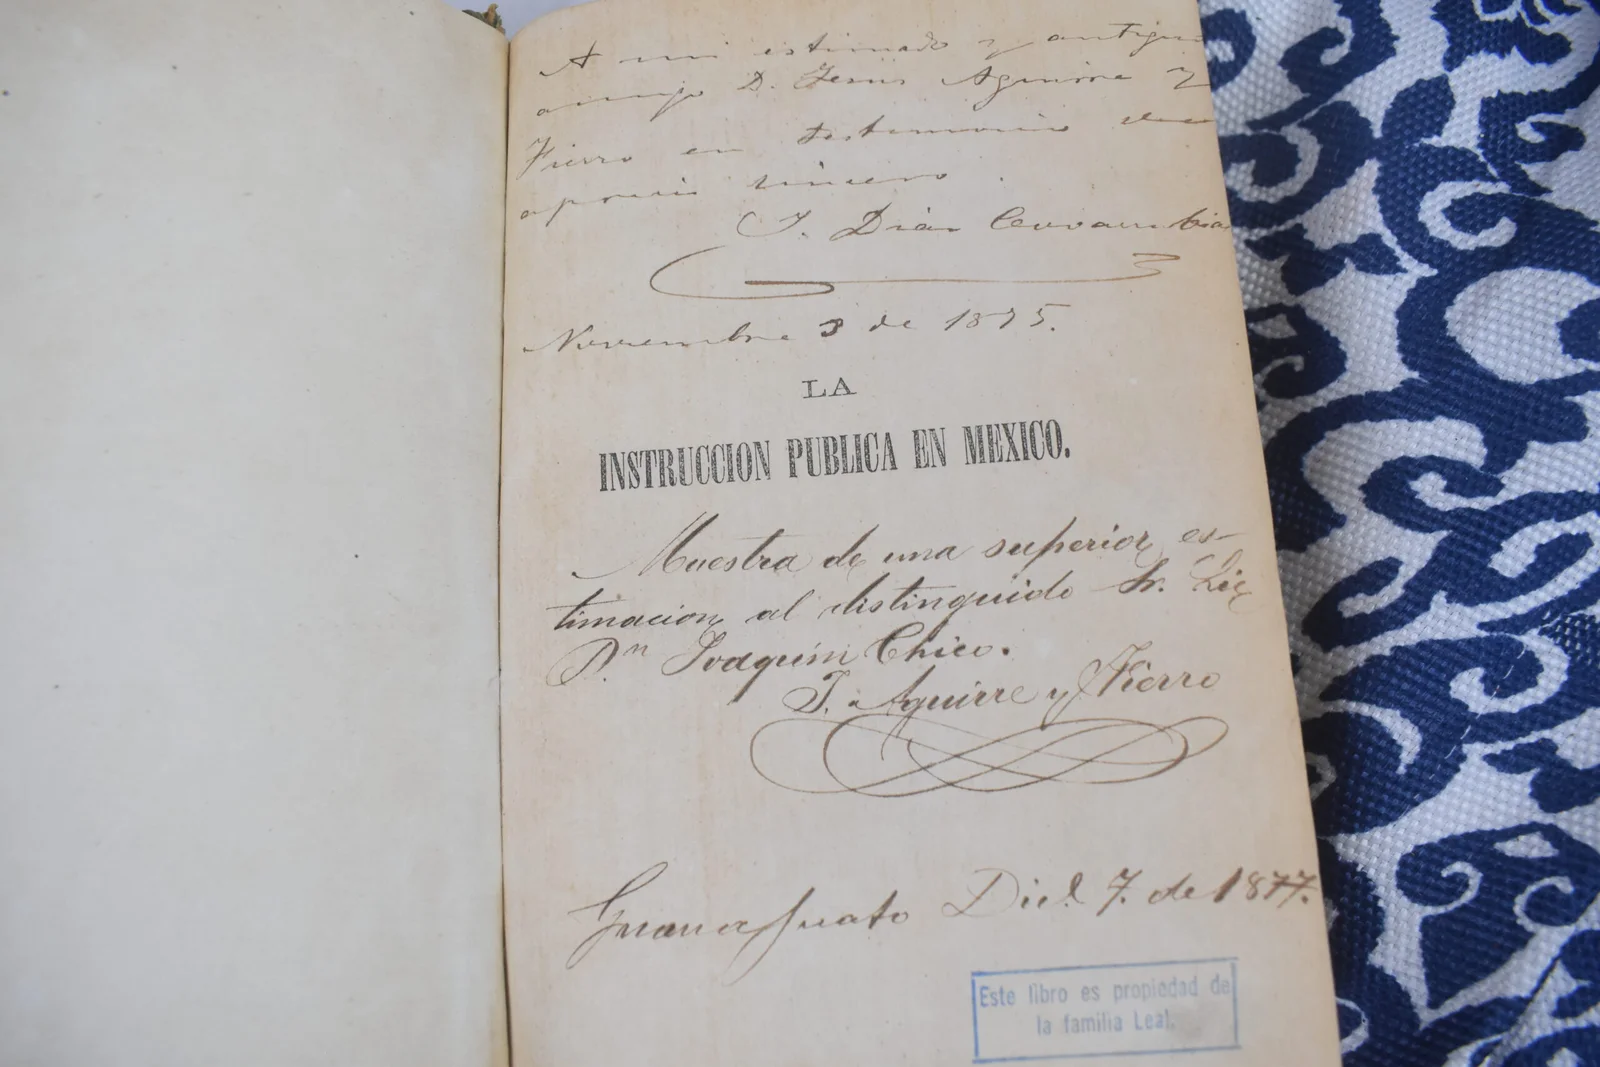 A mi estimado y antiguo
amigo D. Jesus Aguirre y
Fierro en testimonio de
aprecio sincero.
J. Diaz Covarrubias
Noviembre 3 de 1875.
LA
INSTRUCCION PUBLICA EN MEXICO.
Muestra de una superior es-
timacion al distinguido Sr. Lic
Dn Joaquin Chico.
J. Aguirre y Fierro
Guanajuato Dice. 7. de 1877.
Este libro es propiedad de
la familia Leal.